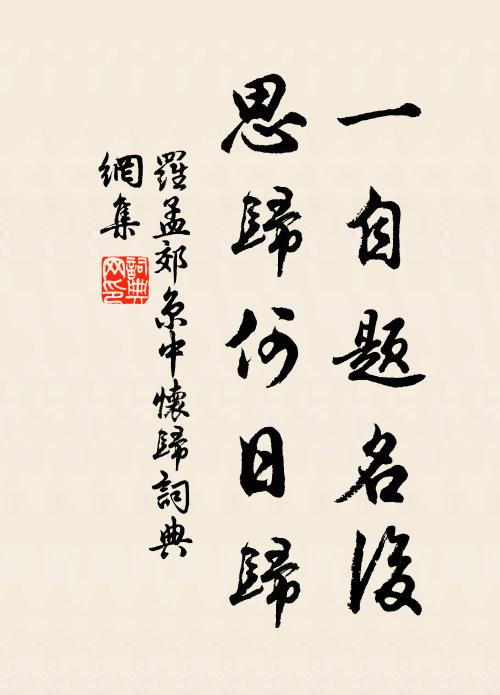 一自題名後
思歸何日歸
羅孟郊京中懷歸詞典
網集
詞典網印